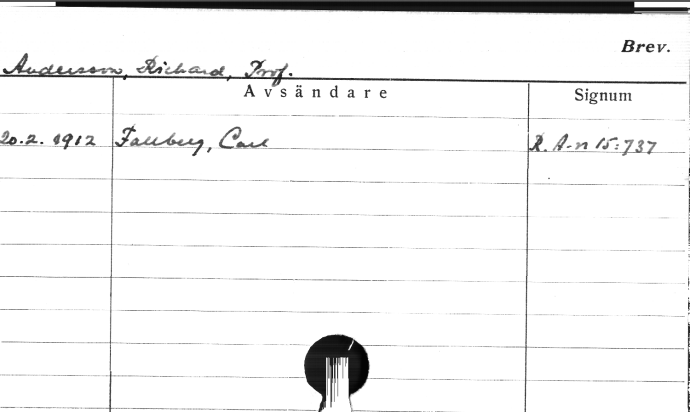 Brev.
Andersson, Richard, Prof.
Avsändare Signum
20.2. 1912 Fallberg, Carl R. A-n 15:737